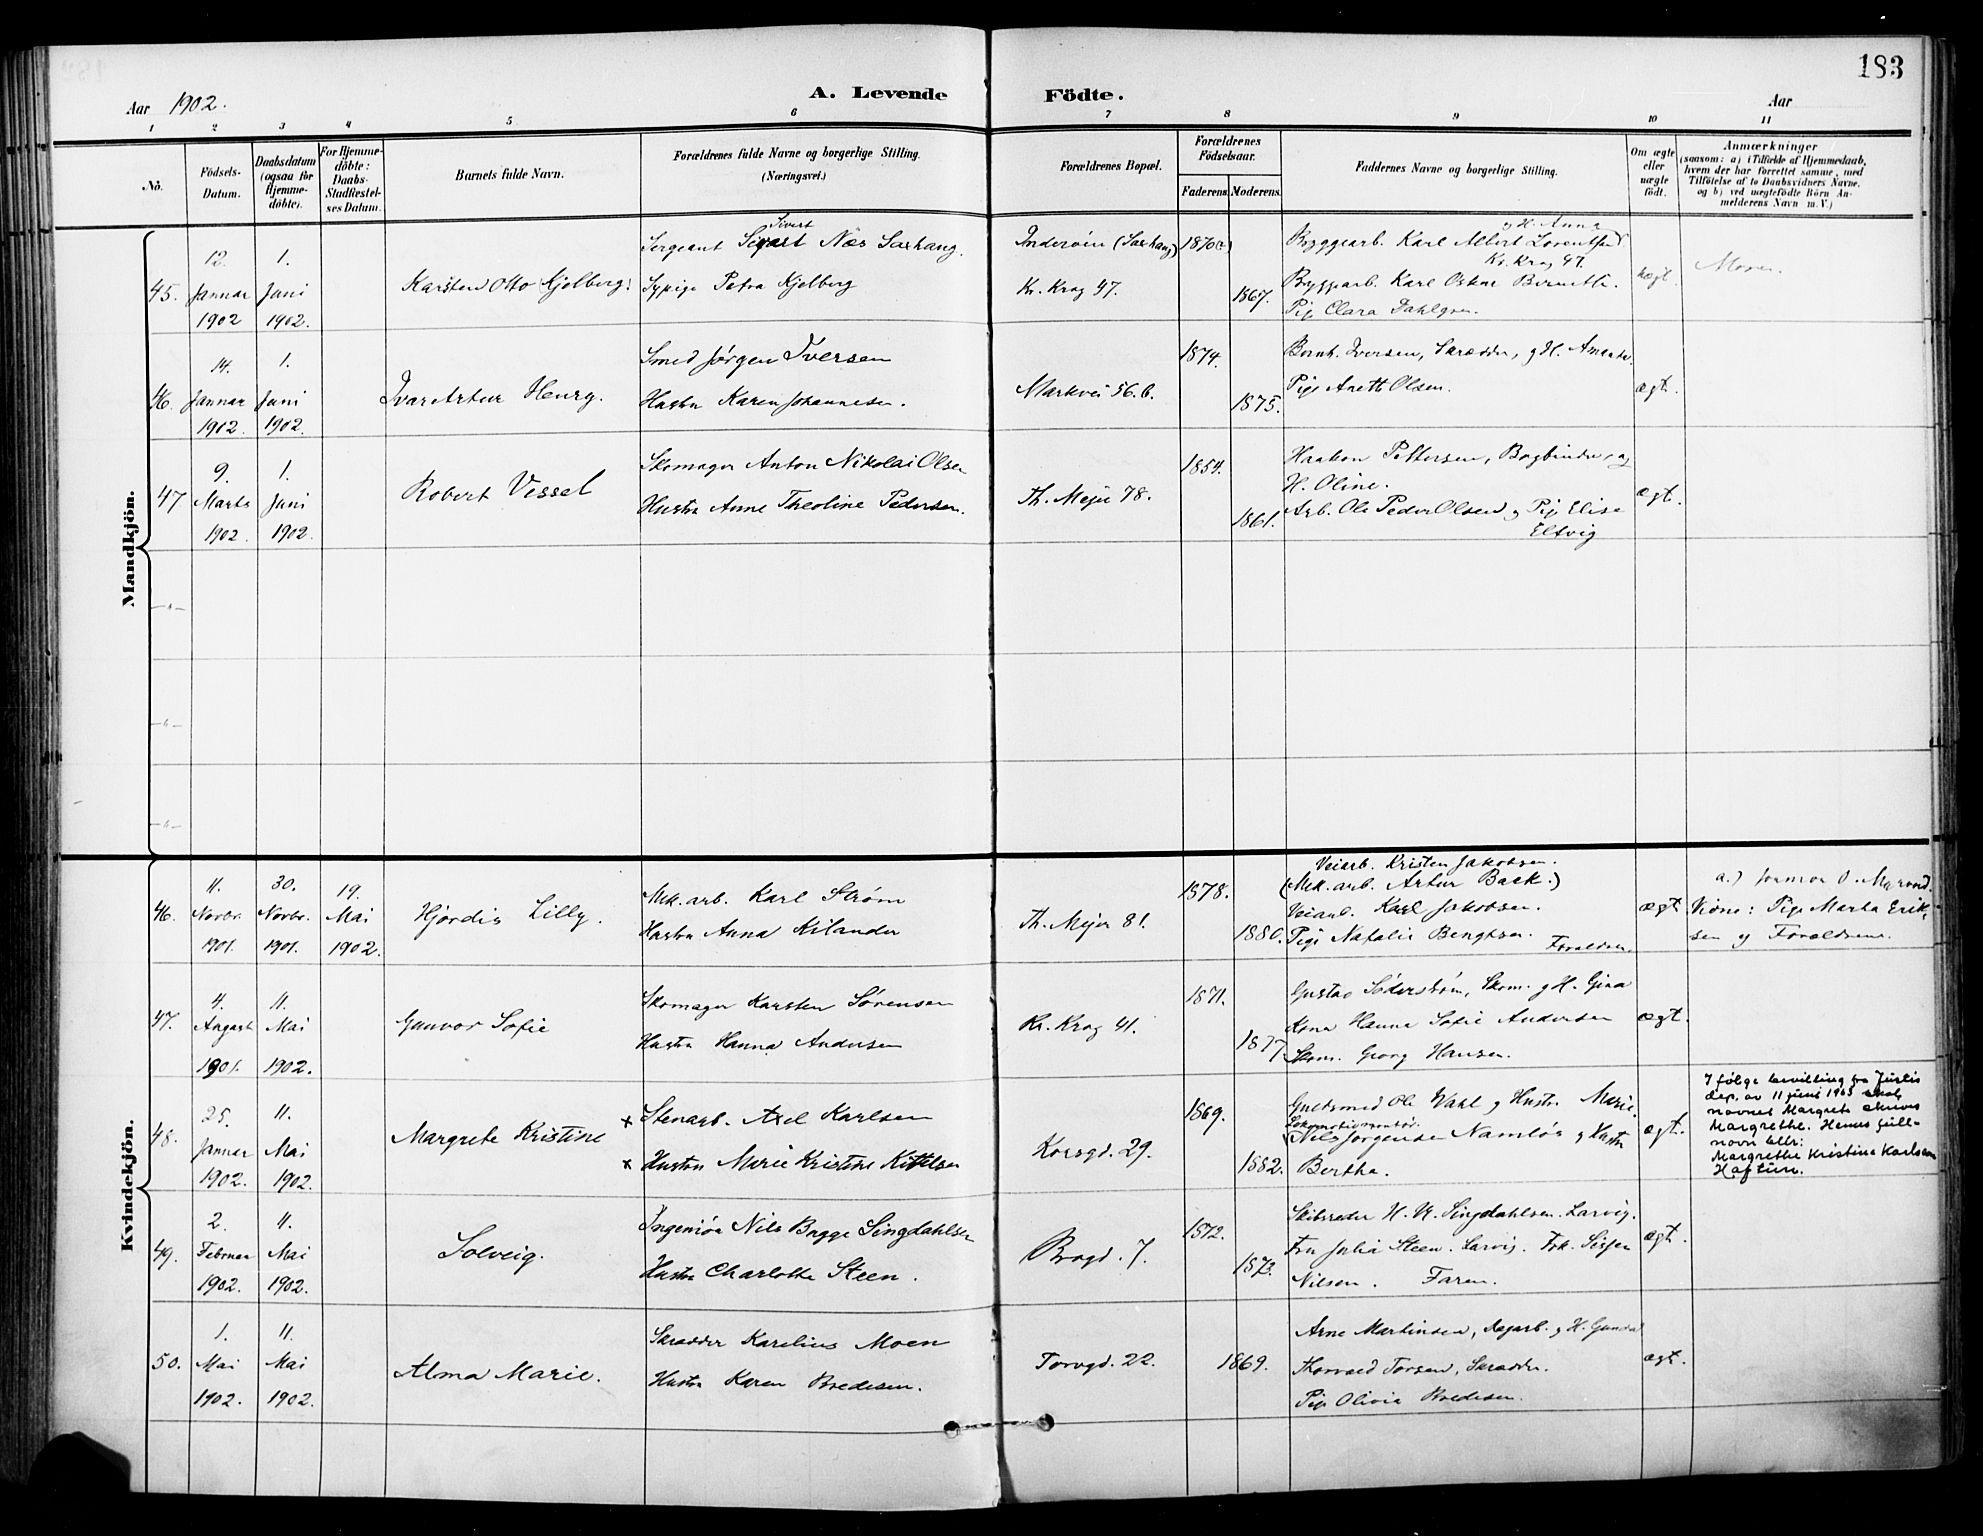 183
Aar 1902.
A. Levende Födte.
Aar
1 2 3 4 5 6 7 8 9 10 11
No.
Födsels-Datum.
Daabsdatum (ogsaa for Hjemme-döbte).
For Hjemme-döbte: Daabs-Stadfæstel-ses Datum.
Barnets fulde Navn.
Forældrenes fulde Navne og borgerlige Stilling. (Næringsvei.)
Forældrenes Bopæl.
Forældrenes Födselsaar.
Faderens. Moderens.
Faddernes Navne og borgerlige Stilling.
Om ægte eller uægte født.
Anmærkninger
(saasom: a) i Tilfælde af Hjemmedaab, hvem der har forrettet samme, med Tilföielse af to Daabsvidners Navne, og b) ved uegtefödte Börn An-melderens Navn m. V.)
Mandkjön.
45.
12. Januar 1902
1. Juni 1902.
Karsten Otto Kjølberg.
Sivert
Sergeant Næs Saxhaug.
Sypige Petra Kjølberg
Inderøen (Saxhaug)
Kr. Krag 47.
1870
1867.
Byggearb. Karl Albert Lorentsen
og H. Anna
Kr. Krag 47.
Byggearb. Karl Oskar
Pige Clara Dahlgren.
uægt.
Moren.
46.
14. Januar 1902.
1. Juni 1902.
Ivar Artur Henry.
Smed Jørgen Iversen
Hustru Karen Johannesen.
Markvei 56.b.
1874.
1875.
Bernh. Iversen, Skrædder, og H. Amanda
Pige Anett Olsen.
ægt.
47
9. Marts 1902.
1. Juni 1902.
Robert Vessel
Skomager Anton Nikolai Olsen
Hustru Anne Theoline Pedersen.
Th. Meyer 78.
1854.
1861.
Haakon Pettersen, Bogbinder, og
H. Oline.
Arb. Ole Peder Olsen og Pige Elise
Eltvig
ægt.
Kvindekjön.
46.
11. Novbr. 1901.
30. Novbr. 1901.
19. Mai 1902.
Hjørdis Lilly.
Mek. arb. Karl Strøm
Hustru Anna Kilander
Th. Meyer 81.
1878.
1880.
Veiarb. Kristen Jakobsen.
(Mek. arb. Artur Back.)
Veiarb. Karl Jakobsen.
Pige Natalie Bengtsen. Forældren
ægt
a.) Jormor O.
Vidne: Pige Marta Erik-
sen og Forældrene.
47.
4. August 1901.
11. Mai 1902.
Gunvor Sofie
Skomager Karsten Sørensen
Hustru Hanna Andersen
Kr. Krag 41.
1871.
1877
Gustav Søderstrøm, Skom. og H. Gina
Kone Hanna Sofie Andersen
Skom. Georg Hansen.
ægt.
48.
25. Januar 1902.
11. Mai 1902.
Margrete Kristine
x Stenarb. Axel Karlsen
x Hustru Marie Kristine Kittelsen
Korsgd. 29.
1869.
1882.
Guldsmed Ole Wahl og Hustr. Marie.
Nils Jørgensen Namløs og Hustru
Bertha.
ægt.
I følge bevilling fra Justis
dep. av 11 juni 1963 skal
navnet Margrete skrives
Margrethe. Hennes full-
navn blir:
Margrethe Kristina Karlsen
Haftun.
49.
2. Februar 1902.
11. Mai 1902.
Solveig.
Ingeniør Nils Bugge Singdahlsen
Hustru Charlotte Steen.
Brogd. 7.
1872.
1873.
Skibsreder H. N. Singdahlsen. Larvig.
Fru Julia Steen. Larvig. Frk. Sisken
Nilsen. Faren.
ægt.
50.
1. Mai 1902.
11. Mai 1902.
Alma Marie.
Skrædder Karelius Moen
Hustru Karen Bredesen.
Torvgd. 22.
1869.
Arne Martinsen, Dagarb. og H. Gunda
Thorvald Torsen, Skrædder.
Pige Olivia Bredesen.
ægt.